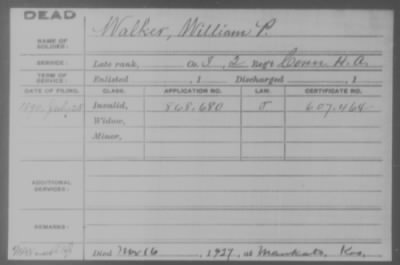 DEAD
NAME OF SOLDIER: Walker, William P.
SERVICE: Late rank, Co. I, 2 Reg't Conn H. A.
TERM OF SERVICE: Enlisted , 1 Discharged , 1
DATE OF FILING. CLASS. APPLICATION NO. LAW. CERTIFICATE NO.
1890. July 28 Invalid, 868.680 J 607.464
Widow,
Minor,
ADDITIONAL SERVICES:
REMARKS:
Died Nov 16 , 1927, at Mankato, Kas.